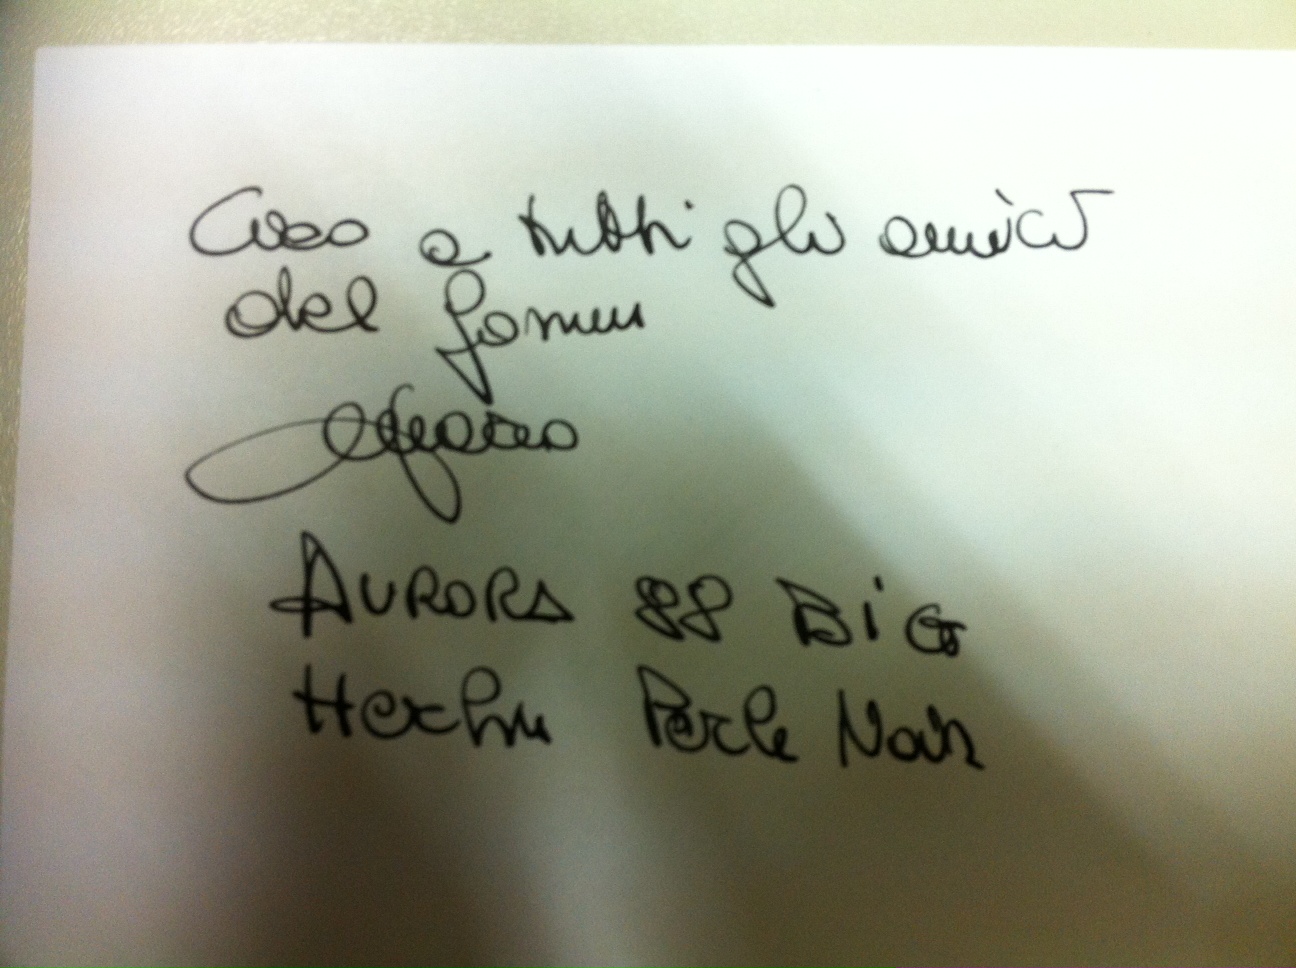 Ciao a tutti gli amici
del forum
AURORA 88 BiG
Herbin Perle Noir